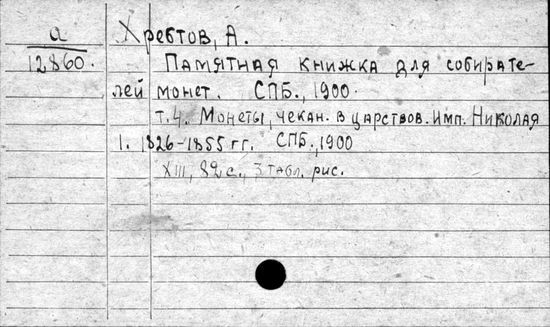 а
12860.
Хребтов, А.
Памятная книжка для собирате-
лей монет. СПБ., 1900.
т.4. Монеты, чекан. в царствов. Имп. Николая
1. 1826-1855 гг. СПБ., 1900
XIII, 82 с., 3 табл. рис.